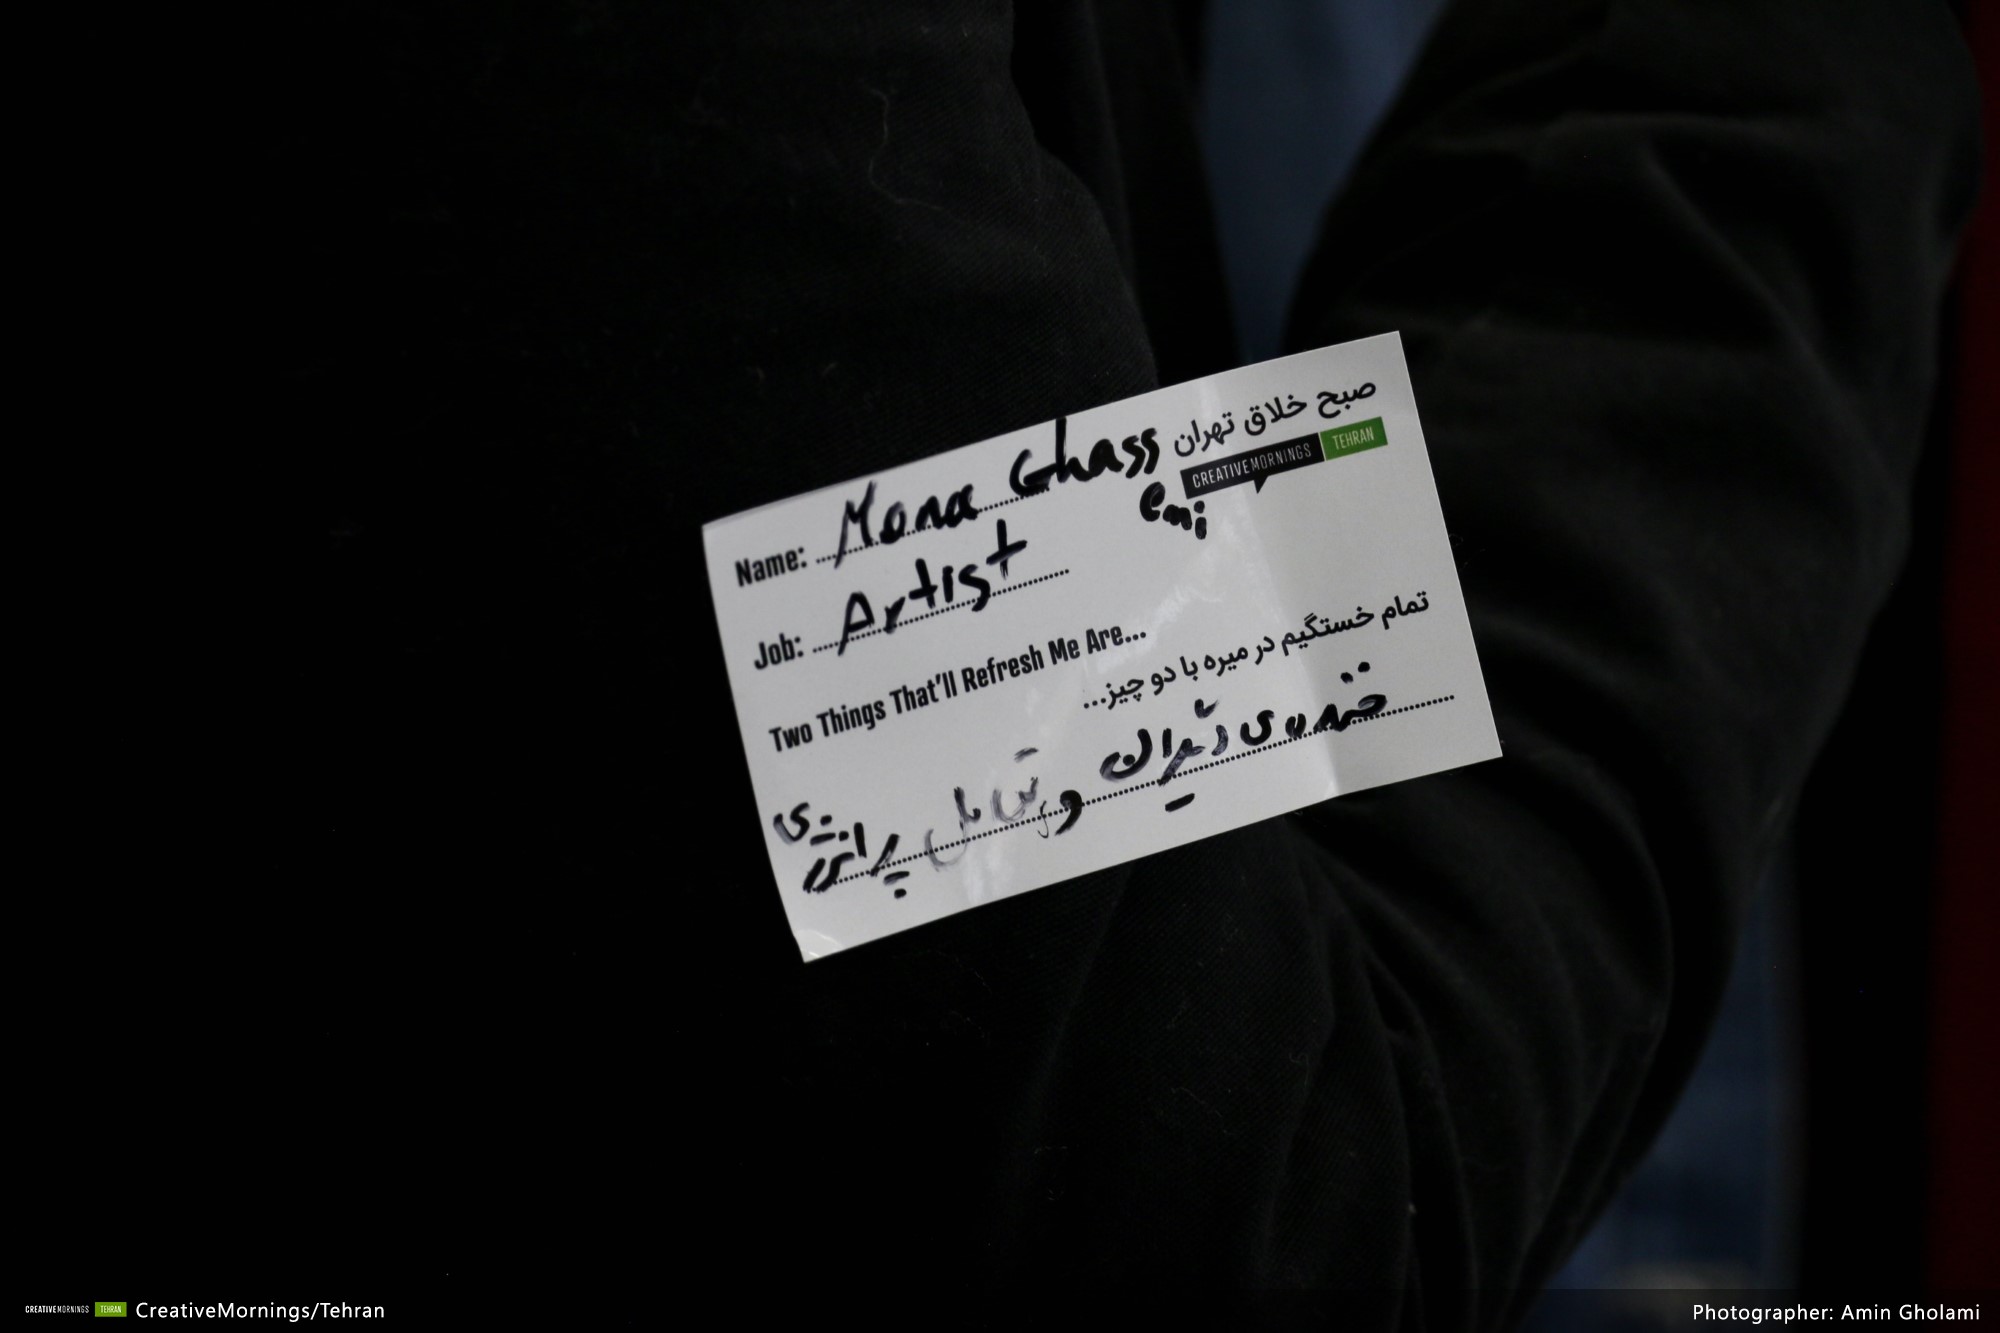 صبح خلاق تهران
CREATIVEMORNINGS TEHRAN
Name: Mona Ghass
emi
Job: Artist
Two Things That'll Refresh Me Are...
تمام خستگیم در میره با دو چیز...
خنده‌ی دیگران و
پر انرژی
CREATIVEMORNINGS TEHRAN CreativeMornings/Tehran
Photographer: Amin Gholami